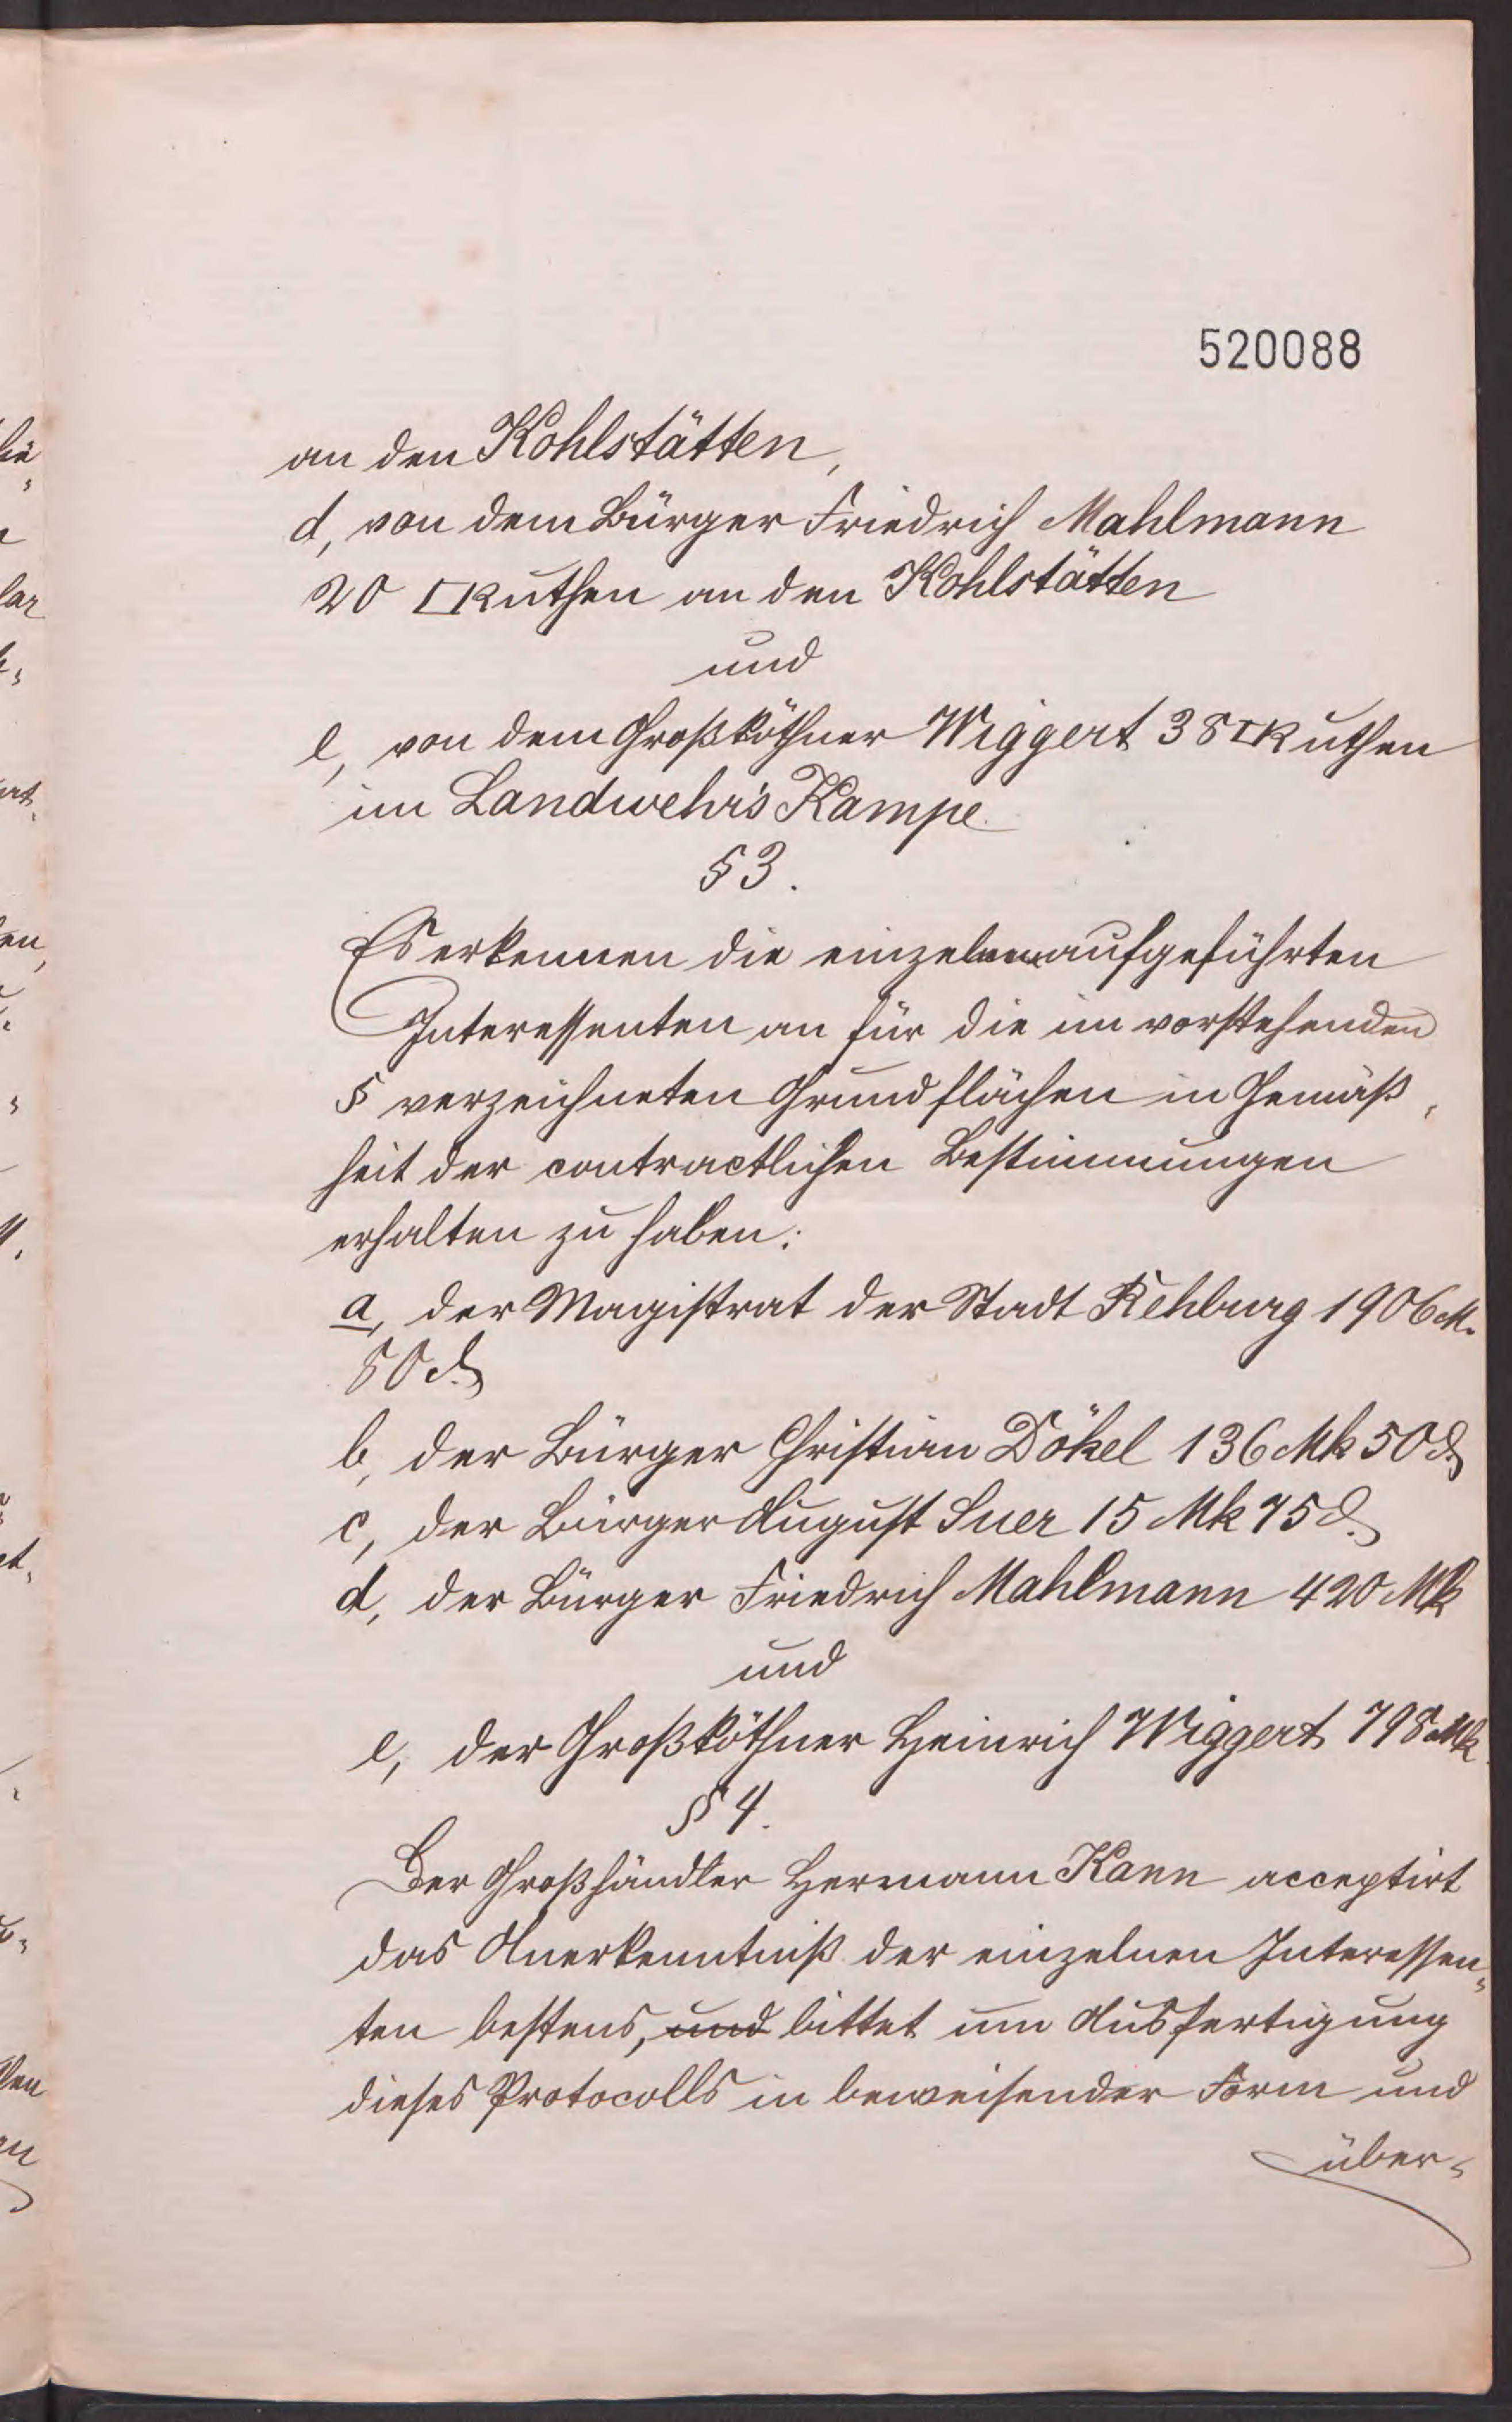 520088
an den Kohlstätten,
d, von dem Bürger Friedrich Mahlmann
20 □Ruthen an den Kohlstätten
und
e, von dem Großköthner Wiggert 38 □Ruthen
im Landwehr's Kampe.
§ 3.
Es erkennen die einzeln aufgeführten
Interessenten an für die im vorstehenden
§ verzeichneten Grundflächen in Gemäß-
heit der contractlichen Bestimmungen
erhalten zu haben:
a, der Magistrat der Stadt Rehburg 1906 M.
80 d.
b, der Bürger Christian Dökel 136 Mk 50 d.
c, der Bürger August Suer 15 Mk 75 d.
d, der Bürger Friedrich Mahlmann 420 Mk
und
e, der Großköthner Heinrich Wiggert 798 Mk.
§ 4.
Der Großhändler Hermann Kann acceptirt
das Anerkenntniß der einzelnen Interessen-
ten bestens, und bittet um Ausfertigung
dieses Protocolls in beweisender Form und
über-